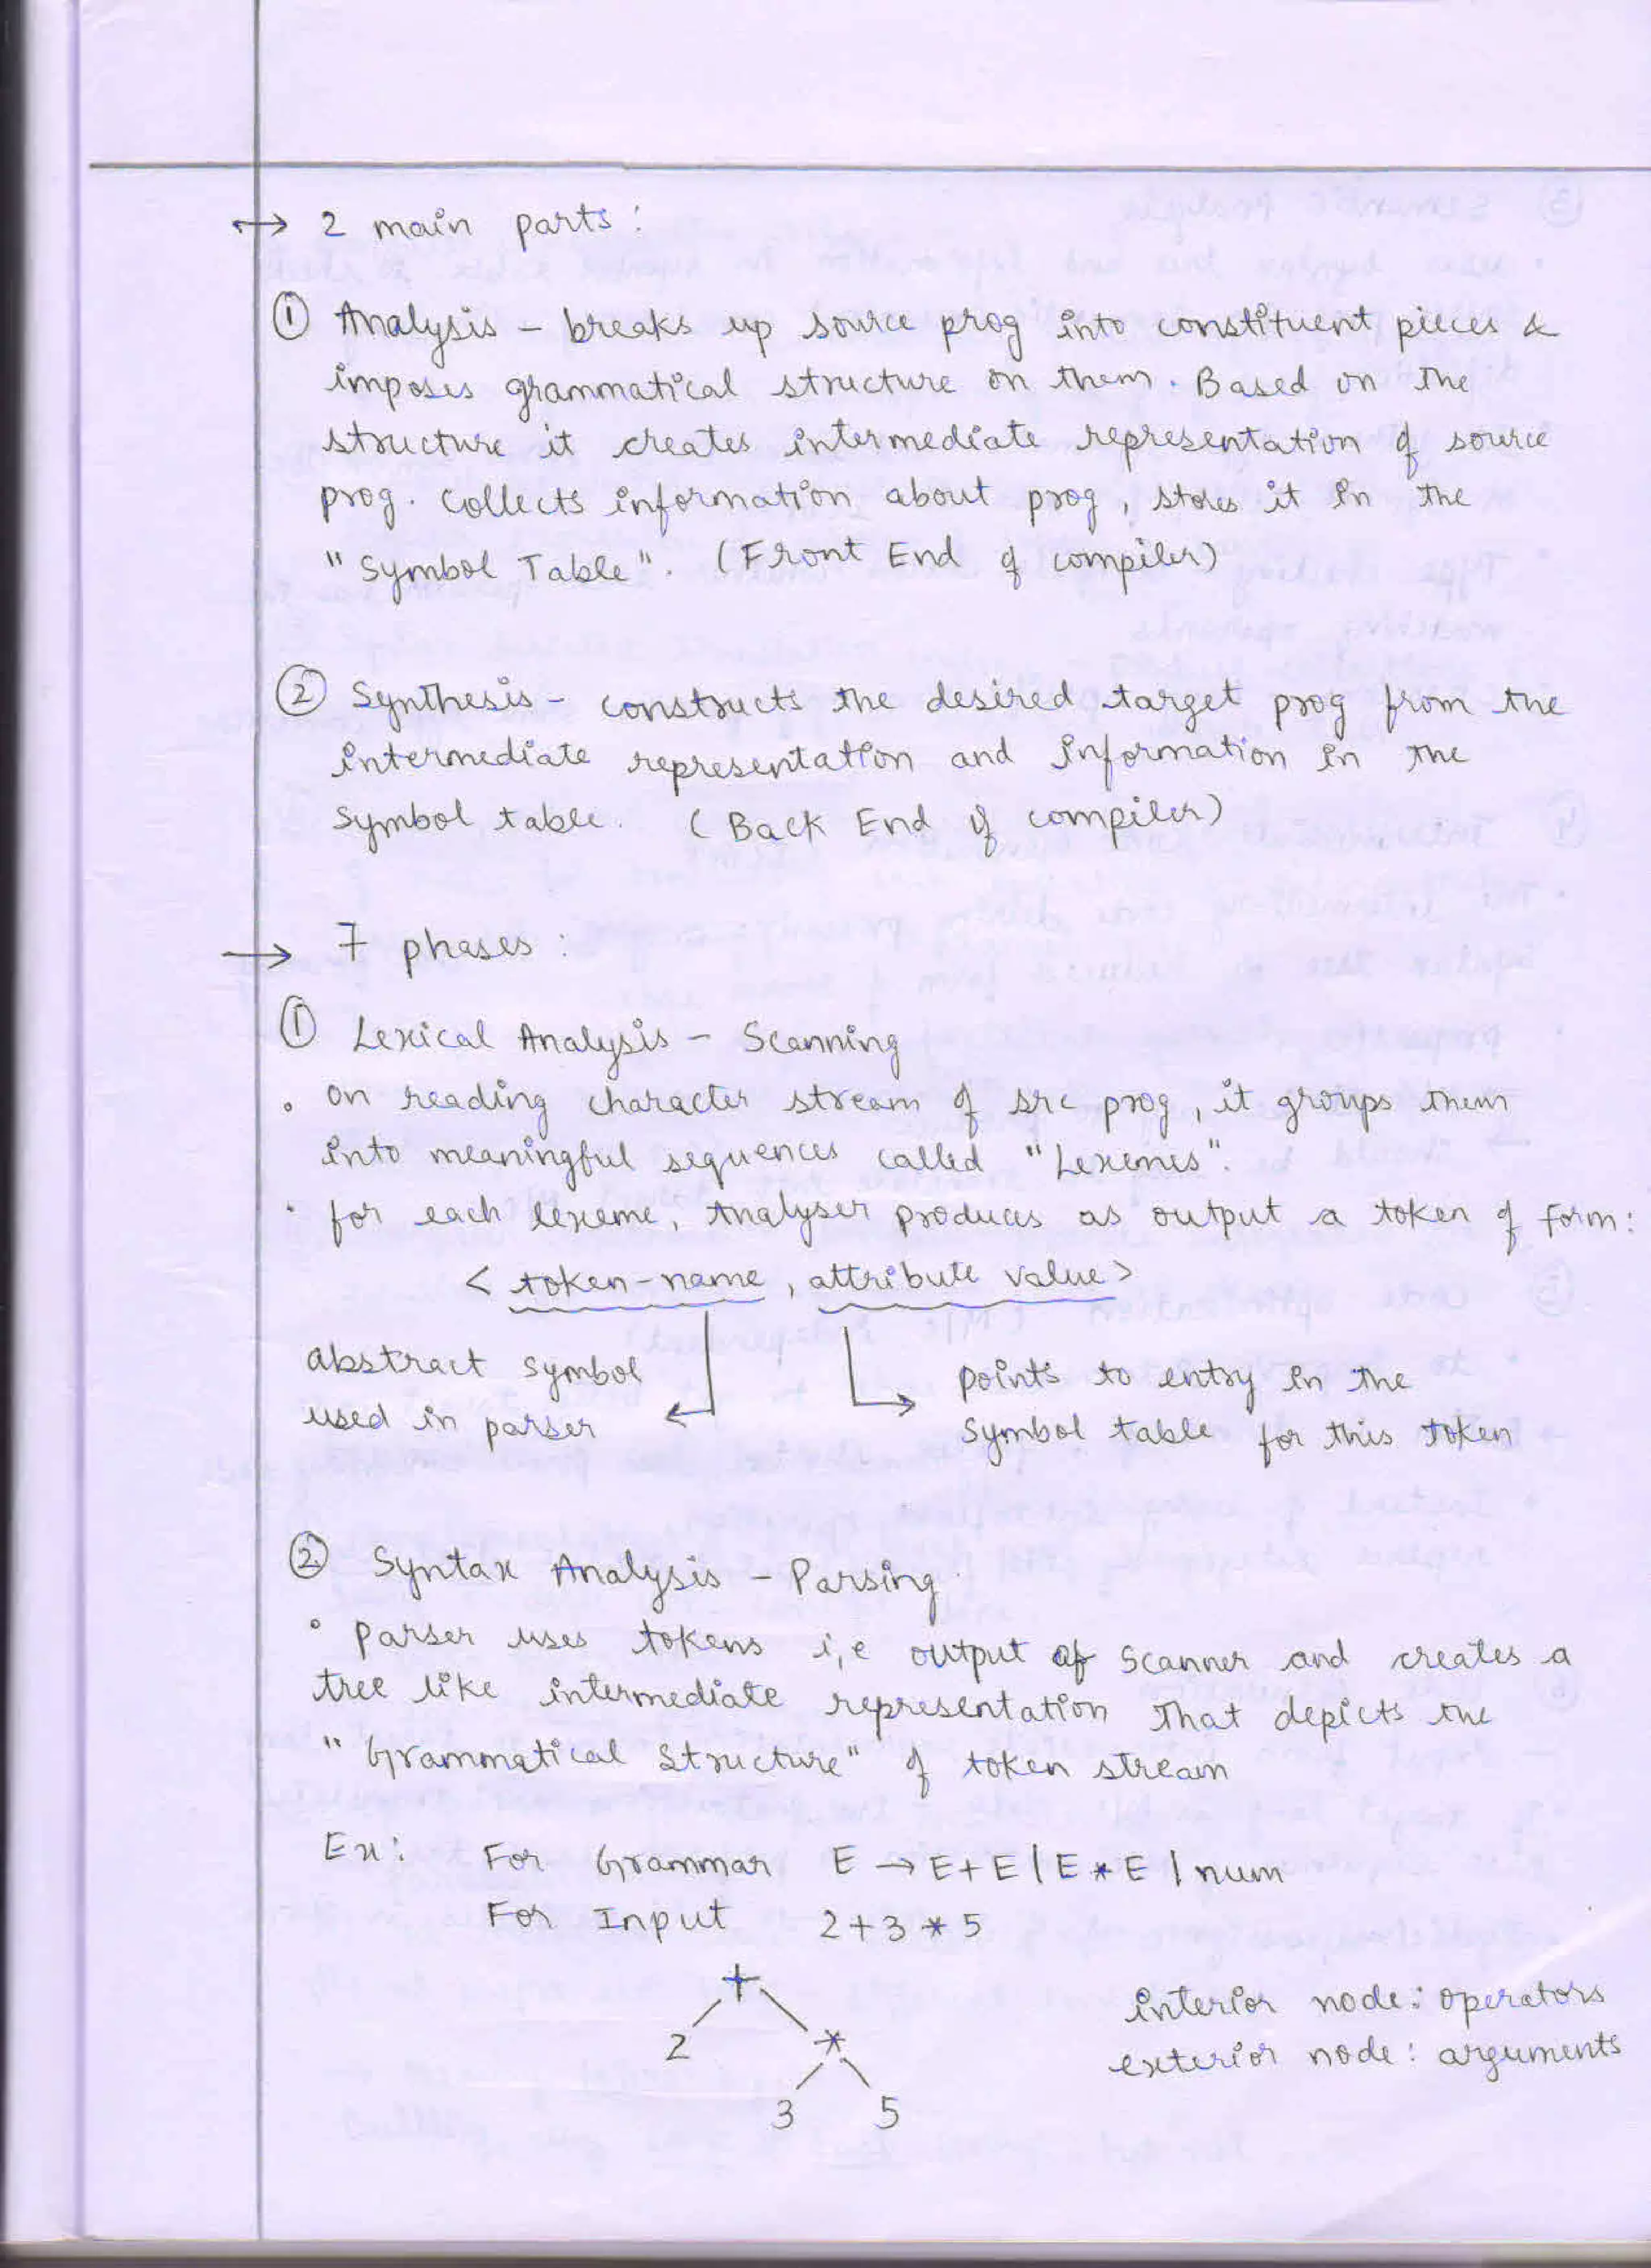 ↔ 2 main parts:
① Analysis - breaks up source prog into constituent pieces &
imposes grammatical structure on them. Based on the
structure it creates intermediate representation of source
prog. Collects information about prog, stores it in the
"Symbol Table". (Front End of compiler)
② Synthesis - constructs the desired target prog from the
intermediate representation and information in the
symbol table. (Back End of compiler)
→ 7 phases:
① Lexical Analysis - Scanning
• On reading character stream of src prog, it groups them
into meaningful sequences called "Lexemes".
• for each lexeme, Analyser produces as output a token of form:
< token-name, attribute value>
abstract symbol
used in parser
points to entry in the
symbol table for this token
② Syntax Analysis - Parsing
• parser uses tokens i,e output of scanner and creates a
tree like intermediate representation that depicts the
"Grammatical Structure" of token stream
Ex: For Grammar E → E+E | E * E | num
For Input 2+3*5
+
2 *
3 5
interior node: operators
exterior node: arguments